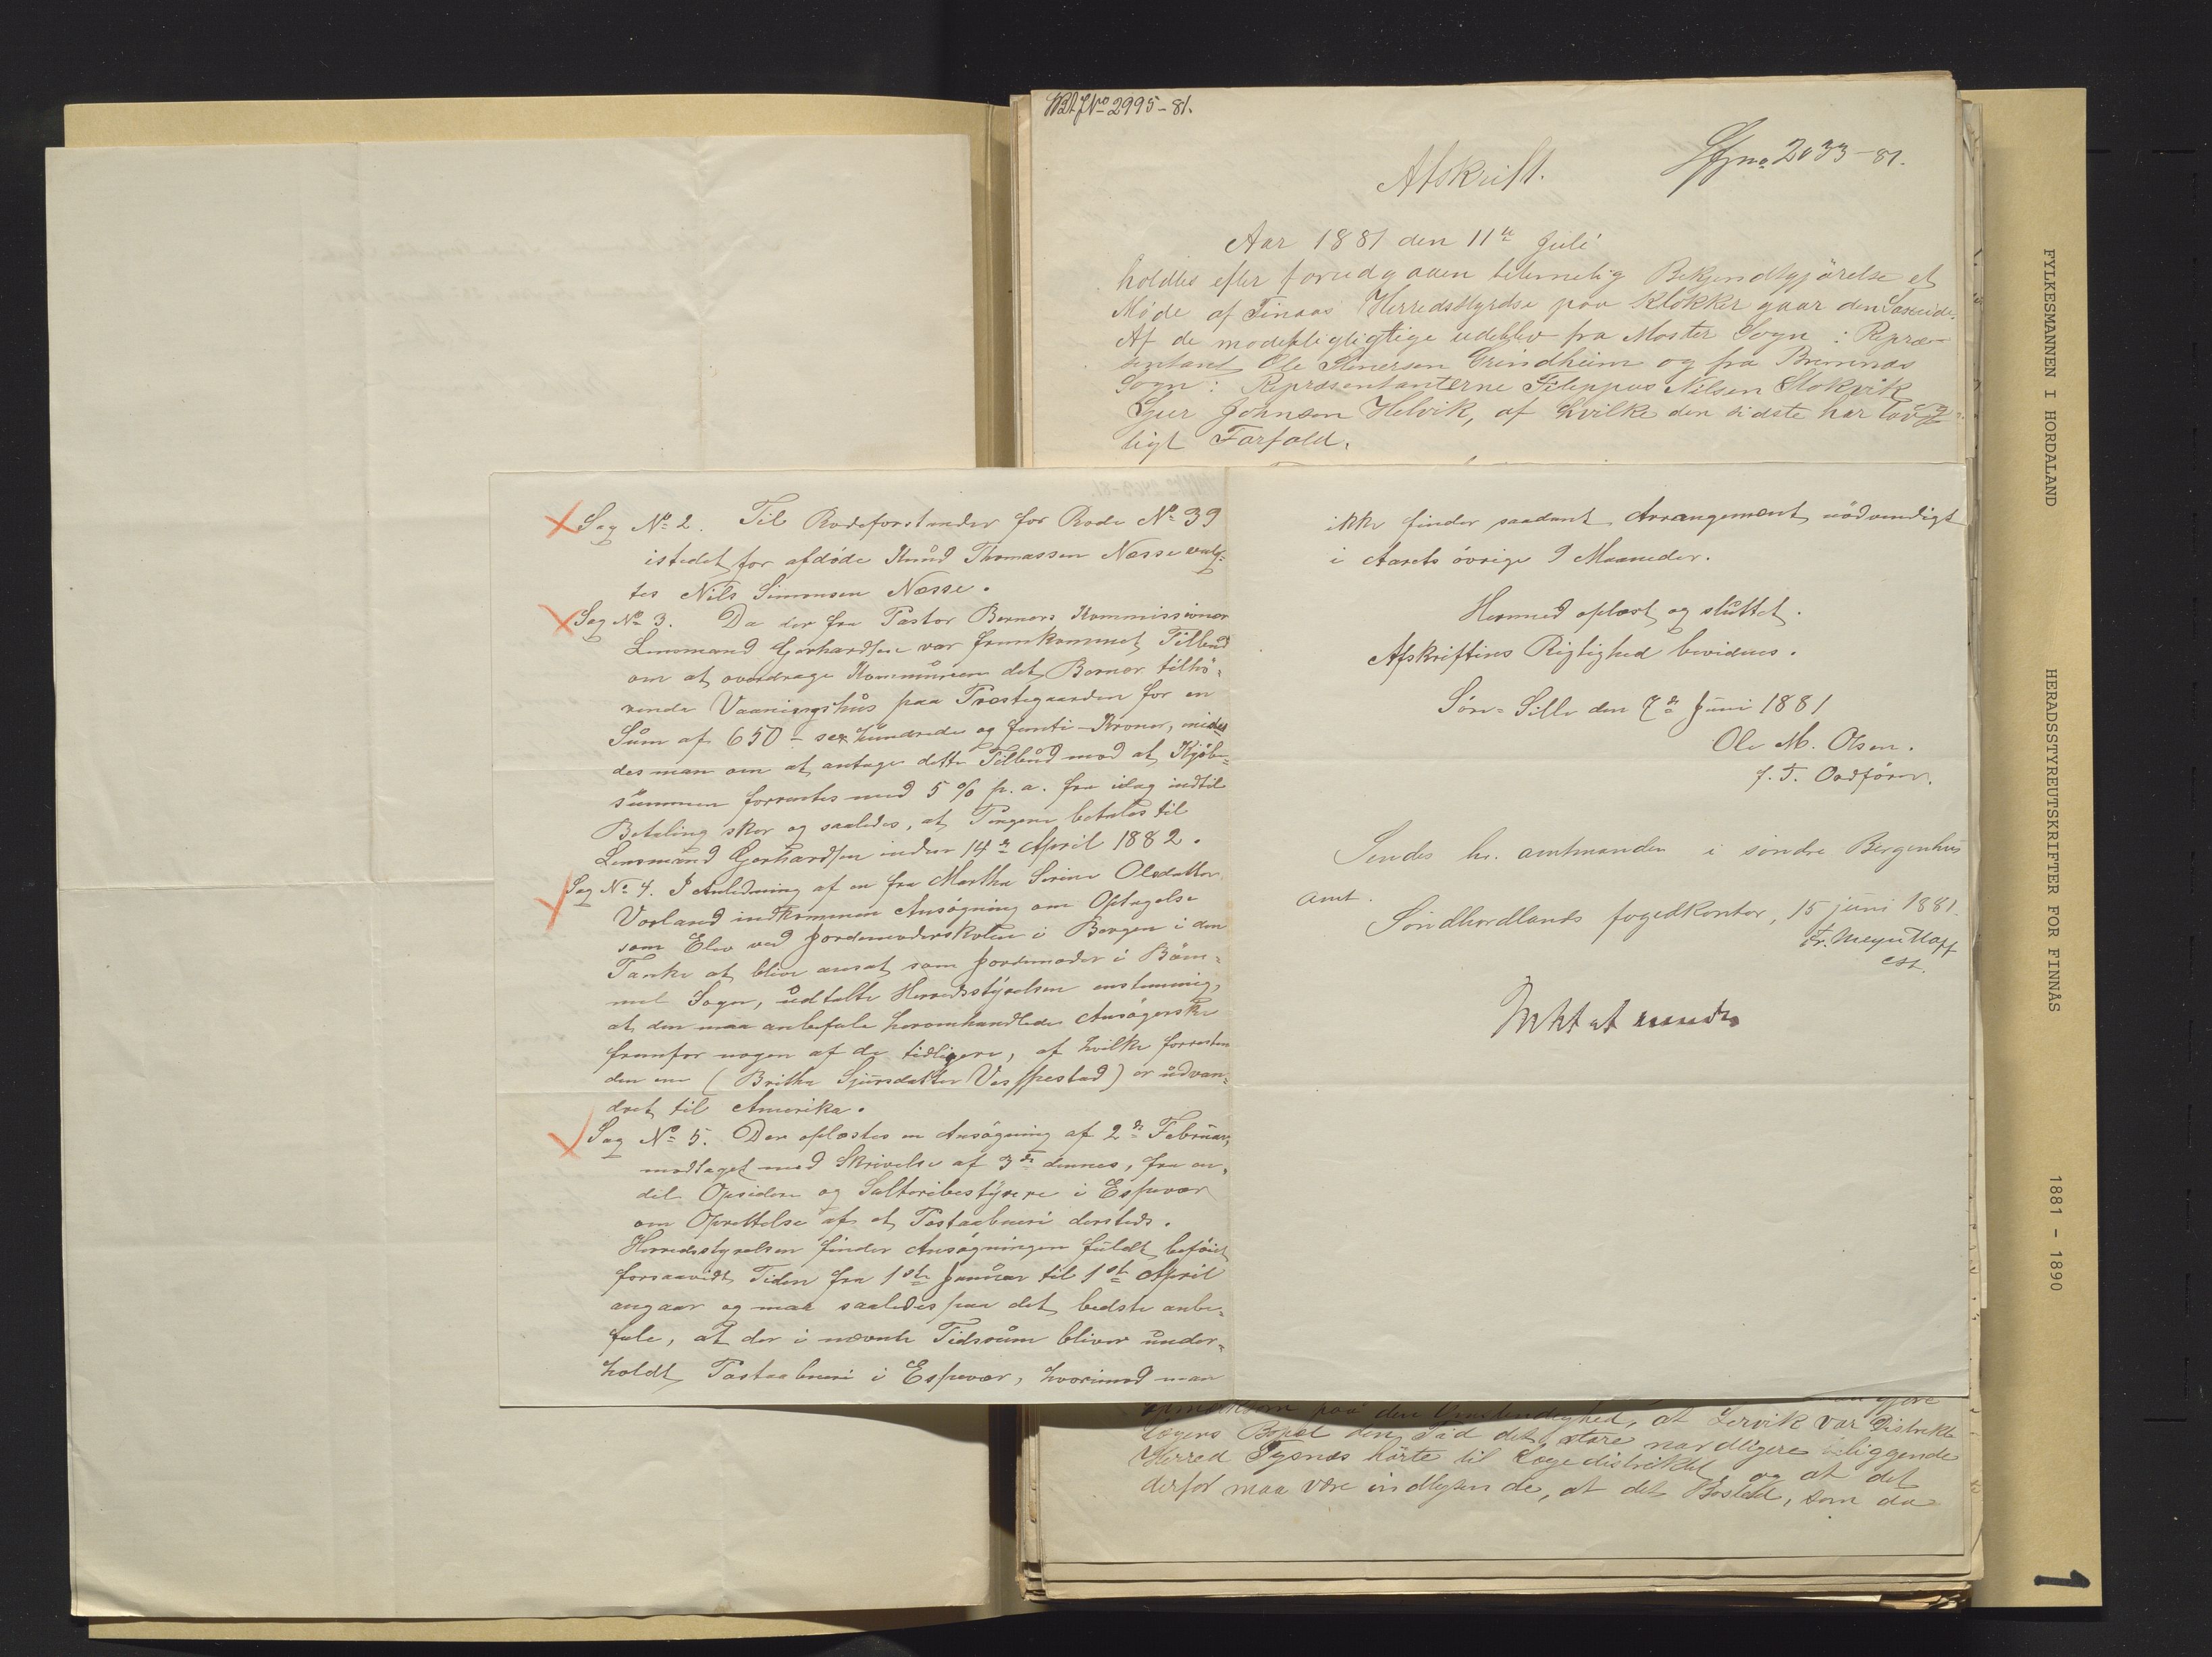 Sag No 2. Til Rodeforstander for Rode No 39
istedet for afdøde Knud Thomassen Næsse valg-
tes Nils Simonsen Næsse.
Sag No 3. Da der fra Pastor Berners Kommissionær
Lensmand Gerhardsen var fremkommet Tilbud
om at overdrage Kommunen det Berner tilhø-
rende Vaaningshus paa Præstegaarden for en
Sum af 650 - sex hundrede og femti - Kroner, enedes
des man om at antage dette Tilbud mod at Kjøbe-
summen forrentes med 5 % p. a. fra idag indtil
Betaling sker og saaledes, at Pengene betales til
Lensmand Gerhardsen inden 14de April 1882.
Sag No 4. I Anledning af en fra Martha Serine Olsdatter
Vorland indkommen Ansøgning om Optagelse
som Elev ved Jordemoderskolen i Bergen i den
Tanke at blive ansat som Jordemoder i Bøm-
mel Sogn, udtalte Herredsstyrelsen enstemmig,
at den maa anbefale heromhandlede Ansøgerske
fremfor nogen af de tidligere, af hvilke forresten
den ene (Britha Sjursdatter Vespestad) er udvan-
dret til Amerika.
Sag No 5. Der oplæstes en Ansøgning af 2den Februar,
modtaget med Skrivelse af 3de dennes, fra en
del Opsidere og Salteribestyrere i Espevær
om Oprettelse af et Postaabneri dersteds.
Herredsstyrelsen finder Ansøgningen fuldt beføiet
forsaavidt Tiden fra 1ste Januar til 1ste April
angaar og maa saaledes paa det bedste anbe-
fale, at der i nævnte Tidsrum bliver under-
holdt Postaabneri i Espevær, hvorimod man
ikke finder saadant Arrangement nødvendigt
i Aarets øvrige 9 Maaneder.
Hermed oplæst og sluttet.
Afskriftens Rigtighed bevidnes.
Søre-Sille den 7de Juni 1881
Ole M. Olsen.
f. T. Ordfører.
Sendes hr. amtmanden i søndre Bergenhus
amt.
Søndhordlands fogedkontor, 15 juni 1881.
Fr. Meyer
cst.
No 2995-81.
Afskrift.
2033-81.
Aar 1881 den 11te Juli
holdtes efter forudgaaen betimelig Bekjendtgjörelse et
Møde af Finaas Herredsstyrelse paa Klokker gaarden Sakseide.
Af de mødepligtigtige udeblev fra Moster Sogn: Repræ-
sentant Ole Stenersen Grindheim og fra Bremnæs
Sogn: Repræsentanterne Filippus Nilsen Stokvik
Sjur Johnsen Helvik, af hvilke den sidste har lovg-
ligt Forfald.
opmærksom paa den Omstendighed, at Lervik var Distrikts
lægens Bopæl den Tid det store nordligere beliggende
Herred Tysnæs hørte til Lægedistriktet og at det
derfor maa være indlysende, at det Bosted, som da
FYLKESMANNEN I HORDALAND
HERADSSTYREUTSKRIFTER FOR FINNÅS
1881 - 1890
1